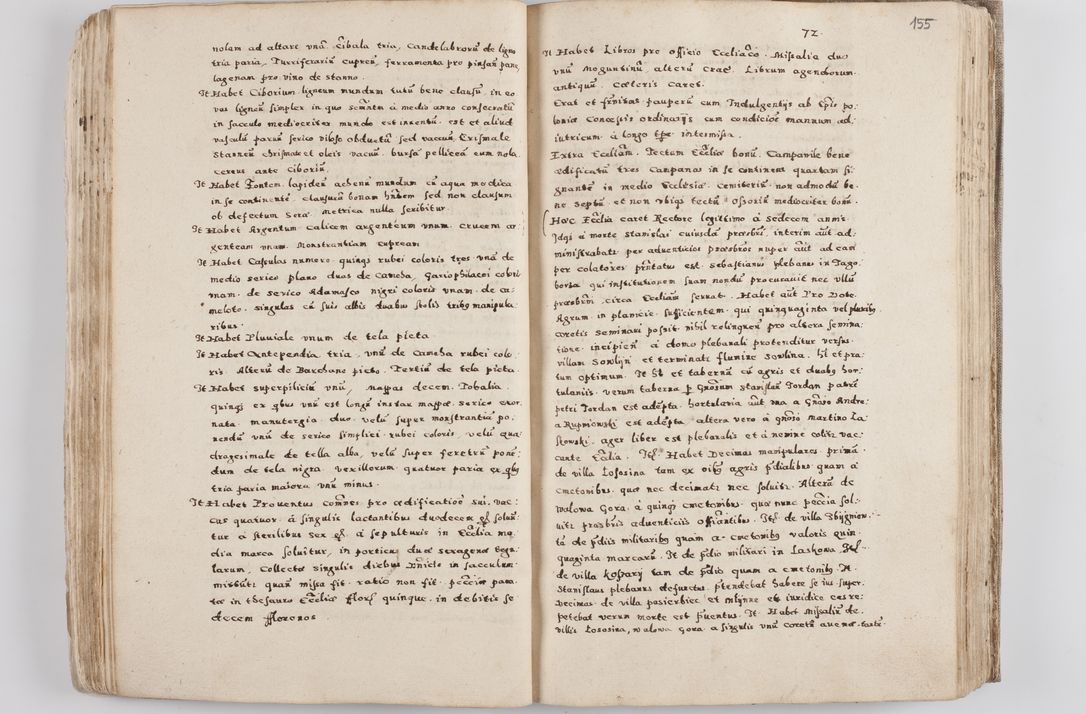 nolam ad altare unã Cibala tria, Candelabrorũ de ligno
tria paria, Turriferariũ cupreũ, ferramenta pro pinsañ pane,
lagenam pro vino de stanno.
It Habet Ciborium ligneum mundum tutũ bene clausũ, in eo
vas ligneũ simplex in quo sacrm̃ a medio anno consecratũ
in sacculo mediocriter mundo est inventũ. est et aliud
vasculũ parvũ serico viloso obductũ sed vacuũ, Crismale
Stanneũ chrismate et oleis vacuũ. bursa pellicea cum nola
cereus ante Ciboriũ.
It Habet Fontem lapideũ acheñ mundum cũ aqua modica
in se continentẽ clausurã bonam hñtem sed non clausum
ob defectum Sera metrica nulla scribitur
It Habet Argentum calicem argenteum unum. crucem ar
genteam unam. Monstrantiam cupream
It Habet Casulas numero quinqʒ rubei coloris tres unã de
medio serico plano duas de Camcha, Gariophilacei coloris
unam de serico Adamasco nigri coloris unam de ca
meloto. singulas cũ suis albis duabus stolis tribʒ manipula
ribus.
It Habet Pluviale unum de tela picta
It Habet Antependia tria, unũ de Camcha rubei colo
ris. Alterũ de Barchano picto. Tertiũ de tela picta
It Habet superpiliciũ unũ, mappas decem. Tobalia
quinqʒ ex qbus unũ est longũ instar mappæ serico exor
nata. manutergia duo. velũ super monstrantiã po
nendũ unũ de serico simplici rubei coloris, velũ qua
dragesimale de tella alba, velũ super feretrũ ponẽ
dum de tela nigra. vexillorum quatuor paria ex qbʒ
tria paria maiora unũ minus.
It Habet Proventus Com̃nes pro ædificatioẽ sui. vac
cas quatuor. á singulis lactantibus duodecem gʀ̃ solvũ
tur á sterilibus sex gʀ̃. á sepulturis in Ecclia me
dia marca solvitur, in porticu duæ sexagenæ tegu
larum, Collecta singulis diebus Dñicis in sacculum
mittitʒ quañ missa fit. ratio non fit. pecũiæ para
tæ in thesauro Eccliæ florʒ quinque. in debitis se
decem florenos
155
72.
It Habet Libros pro officio Eccliastico. Missalia duo
unũ Moguntinũ alterũ Crac. Librum agendorum
antiquũ. Cæteris caret.
Erat et frñitas pauperũ cum Indulgentijs ab Epis po
loniæ Concessis ordinarijs cum condicioẽ manuum ad
iutricum á longo tpẽ intermissa.
Extra Eccliam. Tectum Eccliæ bonũ. Campanile bene
ædificatũ tres Campanas in se continens quartam si
gnantẽ in medio Ecclesiæ. cemiteriũ non admodũ be
ne septũ et non ubiqʒ tectũ. ossoriũ mediocriter bonũ.
Hæc Ecclia caret Rectore legittimo á sedecem annis
Idqʒ á morte Stanislai cuiusdã præsbrũ, interim aut̃ ad
ministrabatʒ per adventicios præsbros nuper aut̃ ad eam
per colatores prñtatus est Sebastianus plebanus in Jago
borta qui institutionem suam nondũ procuravit nec ullũ
præsbrum circa Eccliam servat. Habet aut̃ Pro Dote
Agrum in planicie sufficientem. qui quinquaginta vel pluribʒ
coretis seminari possit. nihil relinquens pro altera semina
tione. incipieñ a domo plebanali protenditur versus
villam Sowlijn et terminatʒ flumine Sowlina. Et et pra
tum optimum. It Et et tabernã cũ agris et duabʒ hor
tulaniis. verum taberna p Gnosum Stanislaũ Jordan patrẽ
petri Jordan est adẽpta. hortulania aut̃ una a Gñoso Andre
a Rupniowski est adẽpta altera vero á gñosò martino La
skowski. ager liber est plebanalis et á nemine colitʒ vac
cante Ecclia. Itẽ. Habet Decimas manipulares primã
de villa Lososina tam ex oibʒ agris p̃dialibus quam á
cmetonibus. quæ nec decimatʒ nec solvitʒ. Alterã de
Walowa Gora á quinqʒ cmetonibus quæ nunc pecũia sol
vitʒ præsbris adventiciis offitiantibus. Itẽ. de villa Zbijgniow
tã de p̃diis militaribus quam a cmetonibʒ valoris quin
quaginta marcarũ. It de p̃dio militari in Laskowa. Itẽ
de villa Kossary tam de p̃dio quam a cmetonibʒ. It
Stanislaus plebanus defunctus p̃tendebat habere se ius super
decimas de villa pasierbiec et młynne et iuridice eas re
petebat verum morte est p̃ventus. It Habet Missaliũ de
villis Lososina, walowa gora a singulis unũ coretũ avenæ.